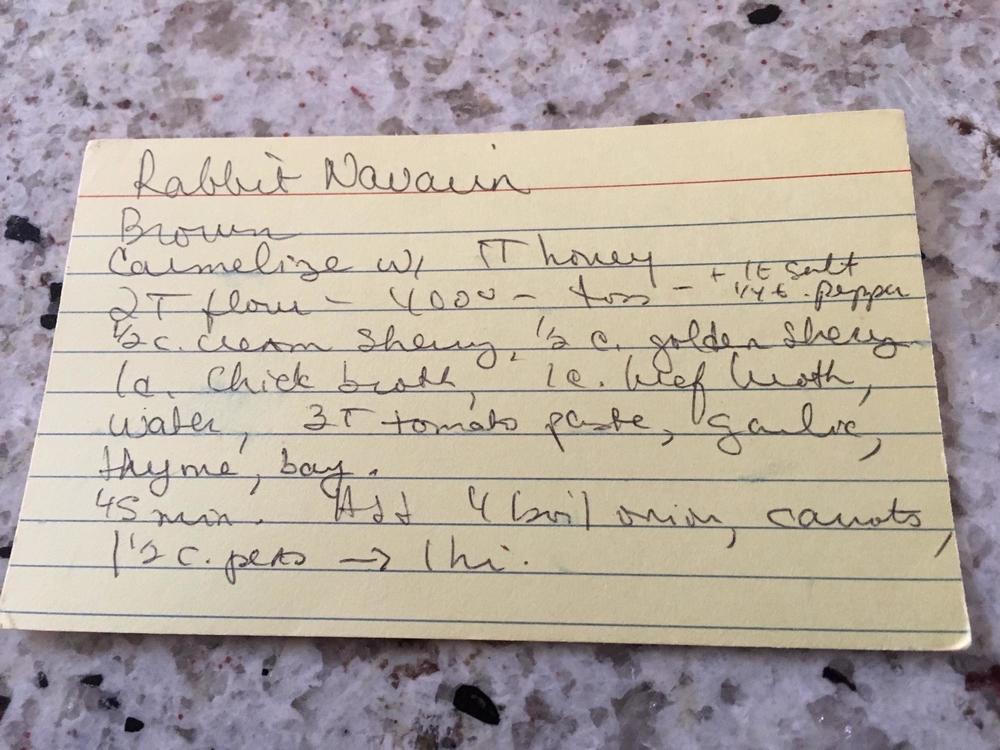 Rabbit Navarin
Brown
Carmelize w/ 1T honey
2T flour - 400° - toss - + 1t salt
1/4 t. pepper
1/2 c. cream sherry, 1/2 c. golden sherry
1c. chick broth, 1c. beef broth,
water, 3T tomato paste, garlic,
thyme, bay.
45 min. Add 4 boil onion, carrots,
1 1/2 c. peas → 1 hr.